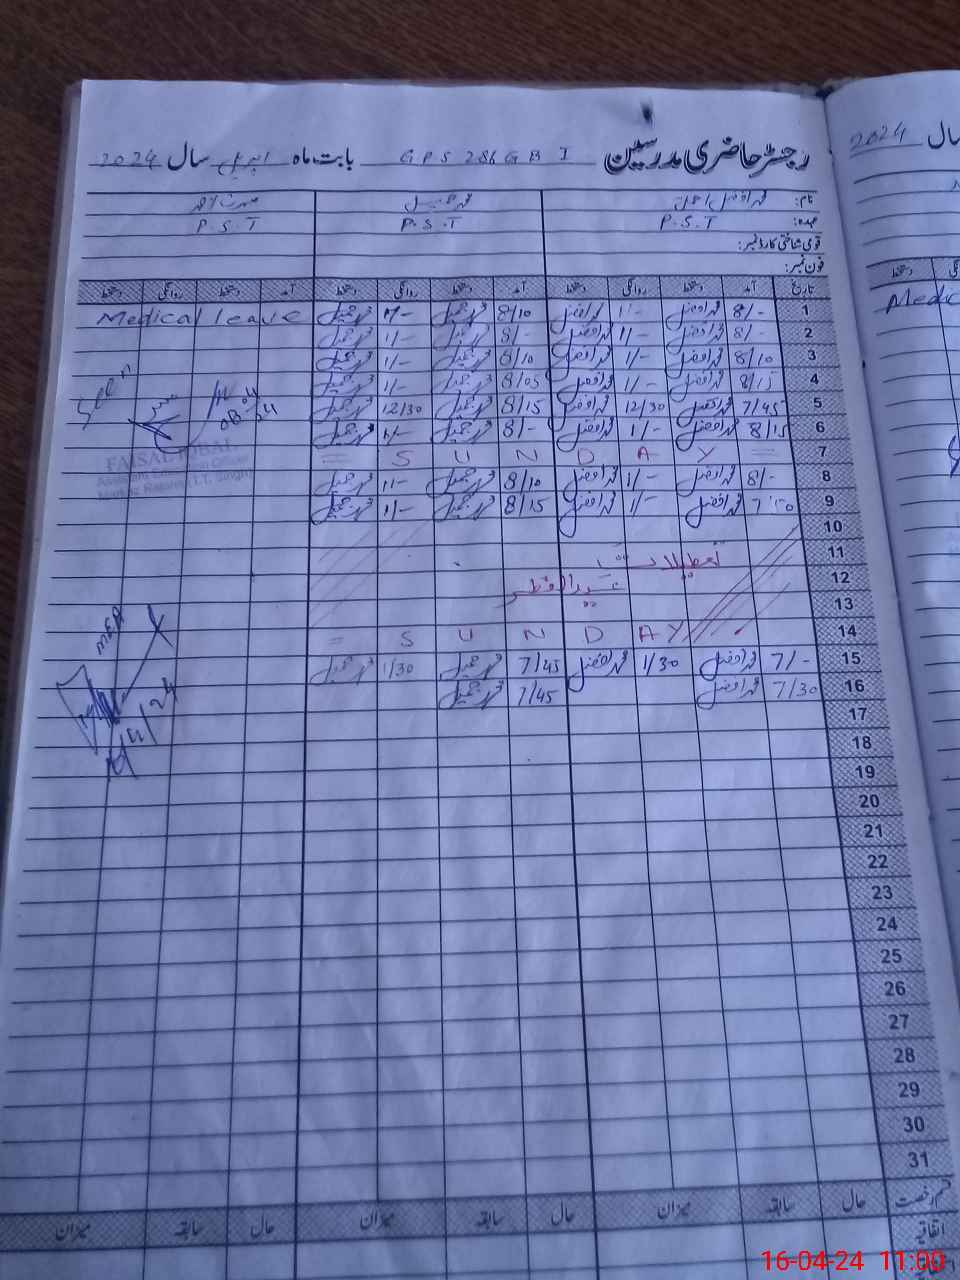 رجسٹر حاضری مدرسین G P S 286 G B I بابت ماہ اپریل سال 2024
نام: محمد افضل محمد جمیل
عہدہ: P.S.T P.S.T P.S.T
قومی شناختی کارڈ نمبر:
فون نمبر:
تاریخ آمد دستخط روانگی دستخط آمد دستخط روانگی دستخط آمد دستخط روانگی دستخط
1 8/- محمد افضل 1/- محمد افضل 8/10 محمد جمیل 1/- محمد جمیل Medical leave
2 8/- محمد افضل 1/- محمد افضل 8/- محمد جمیل 1/- محمد جمیل
3 8/10 محمد افضل 1/- محمد افضل 8/10 محمد جمیل 1/- محمد جمیل
4 8/15 محمد افضل 1/- محمد افضل 8/05 محمد جمیل 1/- محمد جمیل
5 7/45 محمد افضل 12/30 محمد افضل 8/15 محمد جمیل 12/30 محمد جمیل
6 8/15 محمد افضل 1/- محمد افضل 8/- محمد جمیل 1/- محمد جمیل
7 = S U N D A Y =
8 8/- محمد افضل 1/- محمد افضل 8/10 محمد جمیل 1/- محمد جمیل
9 محمد افضل 1/- محمد افضل 8/15 محمد جمیل 1/- محمد جمیل
10
11 تعطیلات
12 عیدالفطر
13
14 = S U N D A Y
15 7/- محمد افضل 1/30 محمد افضل 7/45 محمد جمیل 1/30 محمد جمیل
16 7/30 محمد افضل 7/45 محمد جمیل
17
18
19
20
21
22
23
24
25
26
27
28
29
30
31
قسم رخصت حال سابقہ میزان حال سابقہ میزان حال سابقہ میزان
اتفاقیہ
FAISAL IQBAL
Assistant Education Officer
2024 سال
Medic
16-04-24 11:00